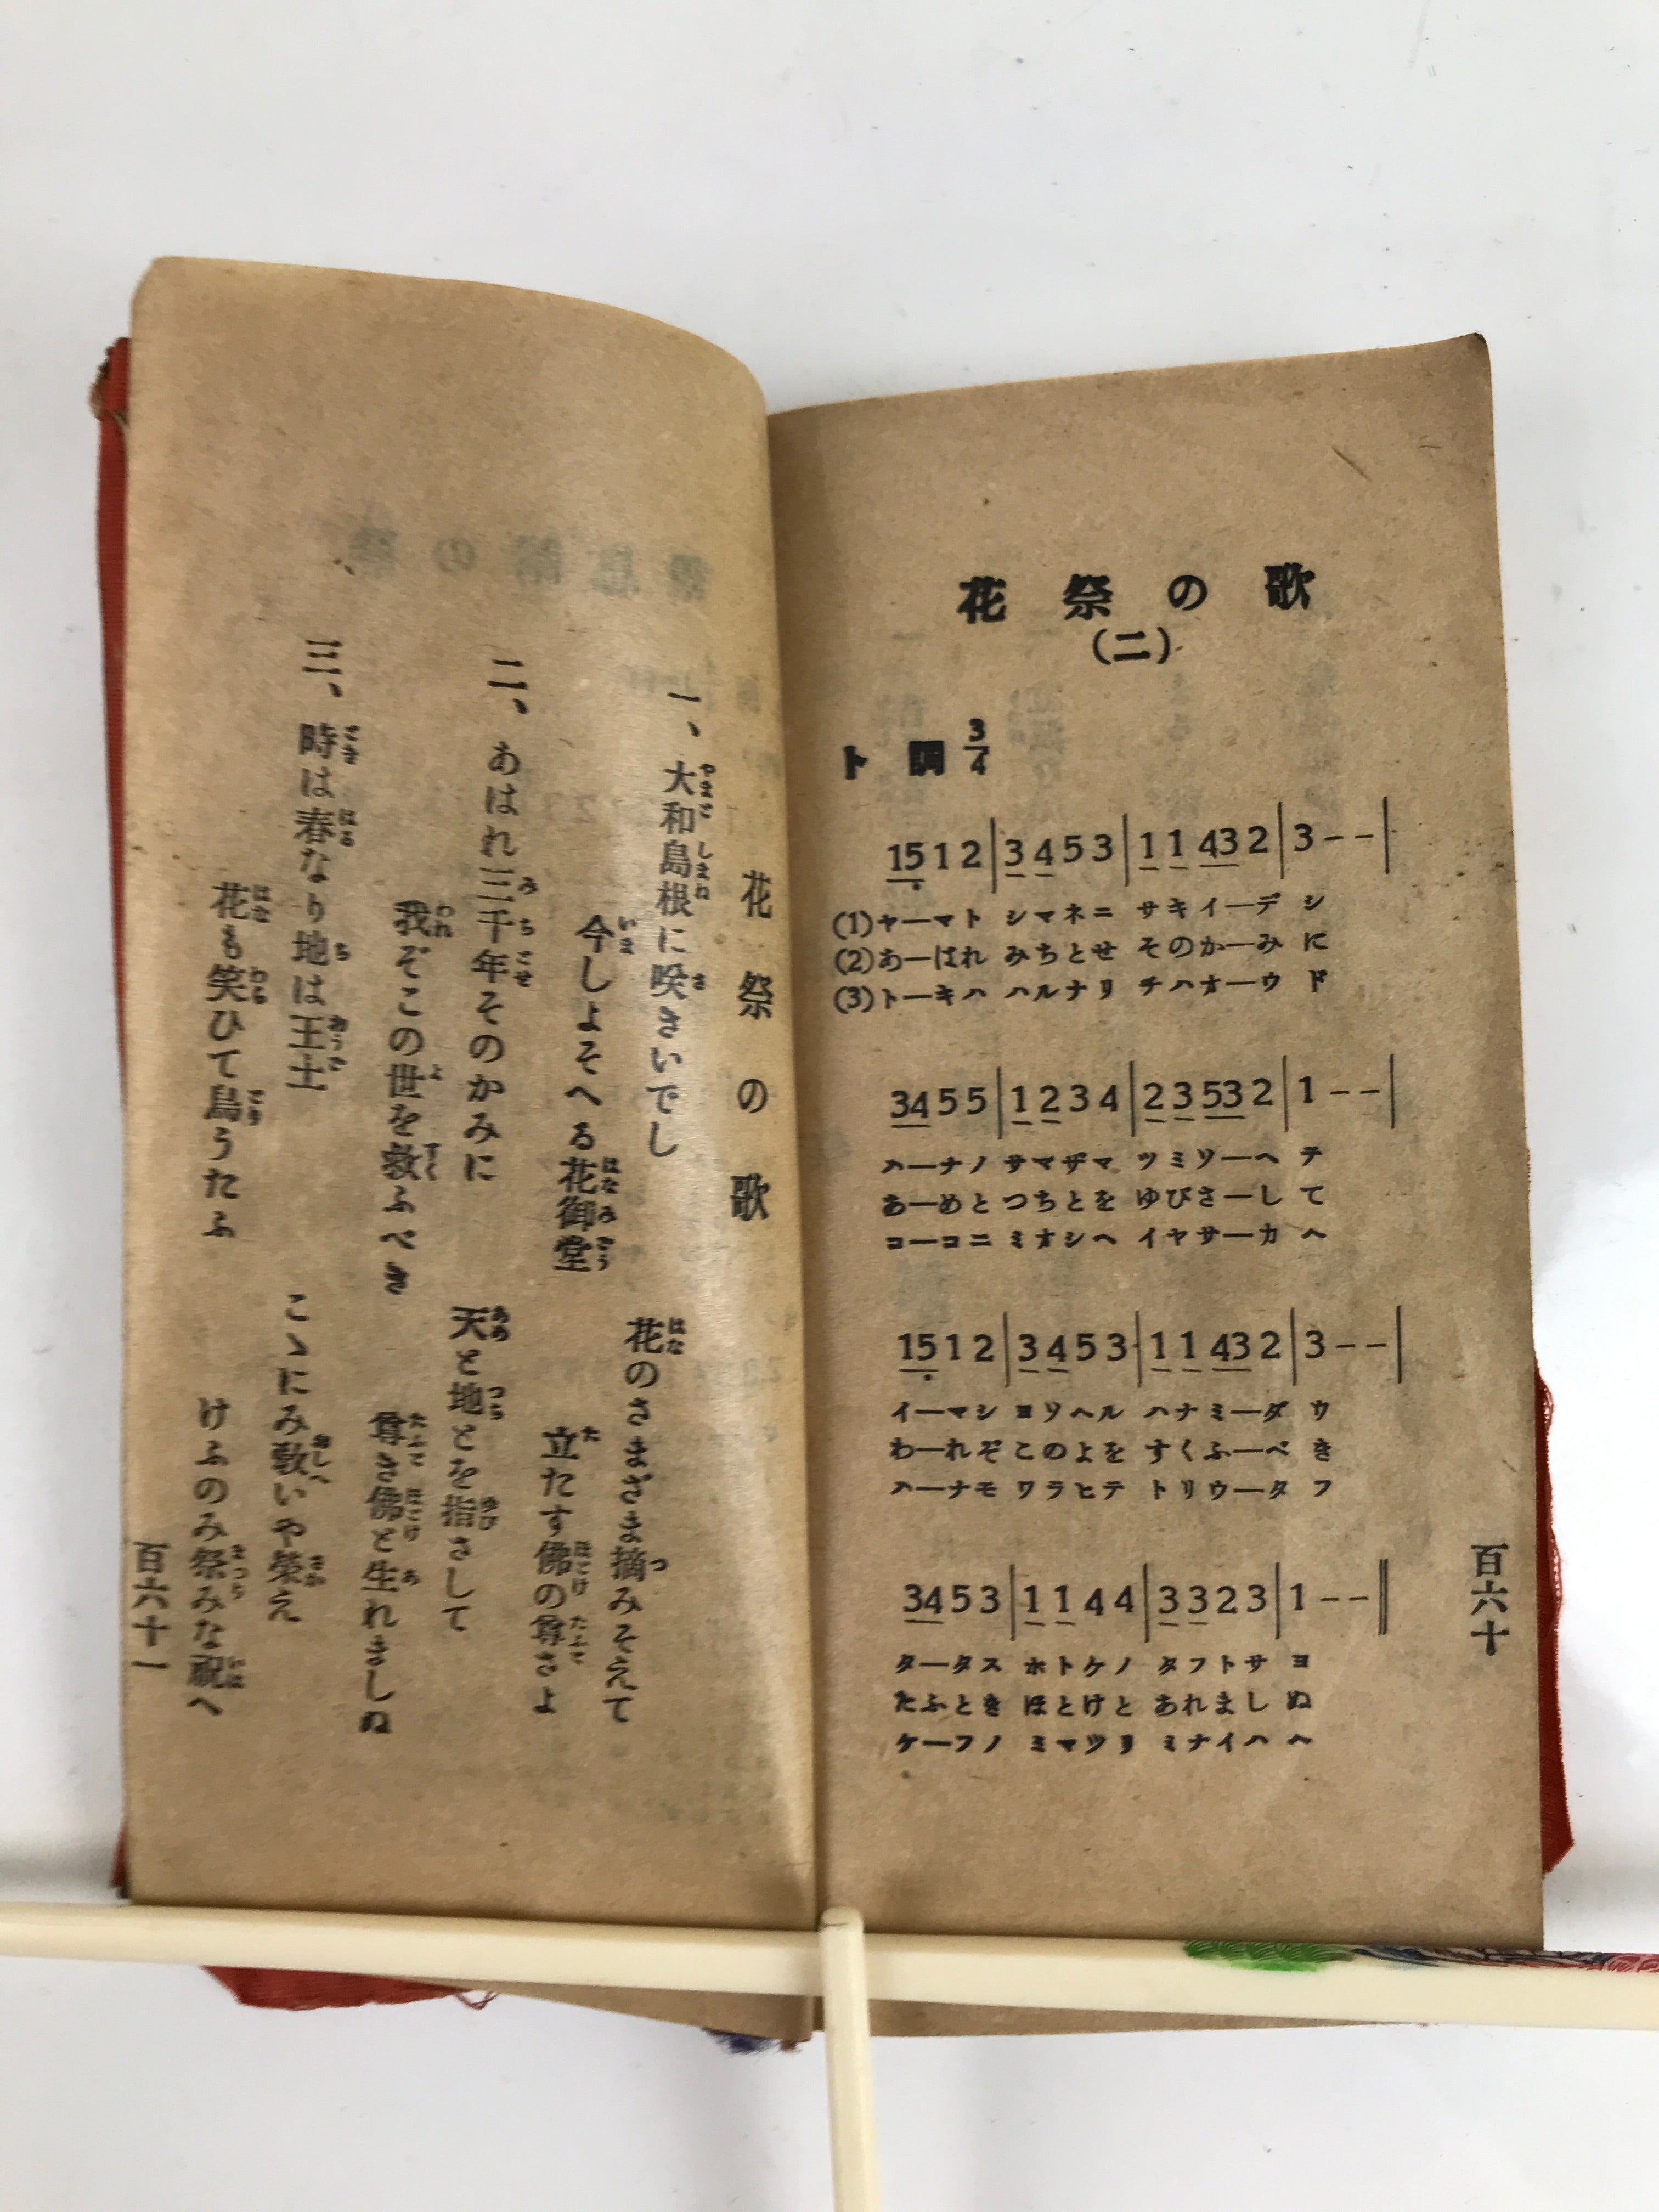 花祭の歌
(二)
ト調 3/4
15 1 2 | 3 4 5 3 | 1 1 43 2 | 3 - - |
(1)ヤ―マト シマネニ サキイ―デ シ
(2)あ―はれ みちとせ そのか―み に
(3)ト―キハ ハルナリ チハオ―ウ ド
34 5 5 | 1 2 3 4 | 2 3 53 2 | 1 - - |
ハ―ナノ サマザマ ツミソ―ヘ テ
あ―めと つちとを ゆびさ―し て
コ―コニ ミオシヘ イヤサ―カ ヘ
15 1 2 | 3 4 5 3 | 1 1 43 2 | 3 - - |
イ―マシ ヨソヘル ハナミ―ダ ウ
わ―れぞ このよを すくふ―べ き
ハ―ナモ ワラヒテ トリウ―タ フ
34 5 3 | 1 1 4 4 | 3 3 2 3 | 1 - - ‖
タ―タス ホトケノ タフトサ ヨ
たふとき ほとけと あれまし ぬ
ケ―フノ ミマツリ ミナイハ ヘ
百六十
花祭の歌
一、大和島根に咲さいでし
花のさまざま摘みそえて
今しよそへる花御堂
立たす佛の尊さよ
二、あはれ三千年そのかみに
天と地とを指さして
我ぞこの世を救ふべき
尊き佛と生れましぬ
三、時は春なり地は王土
こゝにみ敎いや榮え
花も笑ひて鳥うたふ
けふのみ祭みな祝へ
百六十一